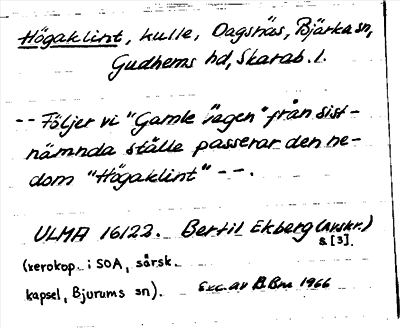 Högaklint, kulle, Dagsnäs, Bjärka sn,
Gudhems hd, Skarab. l.
-- Följer vi "Gamle vägen" från sist-
nämnda ställe passerar den ne-
dom "Högaklint" --.
ULMA 16122. Bertil Ekberg (Avskr.)
s [3].
(xerokop. i SOA, särsk.
kapsel, Bjurums sn).
Exc. av B Bm 1966